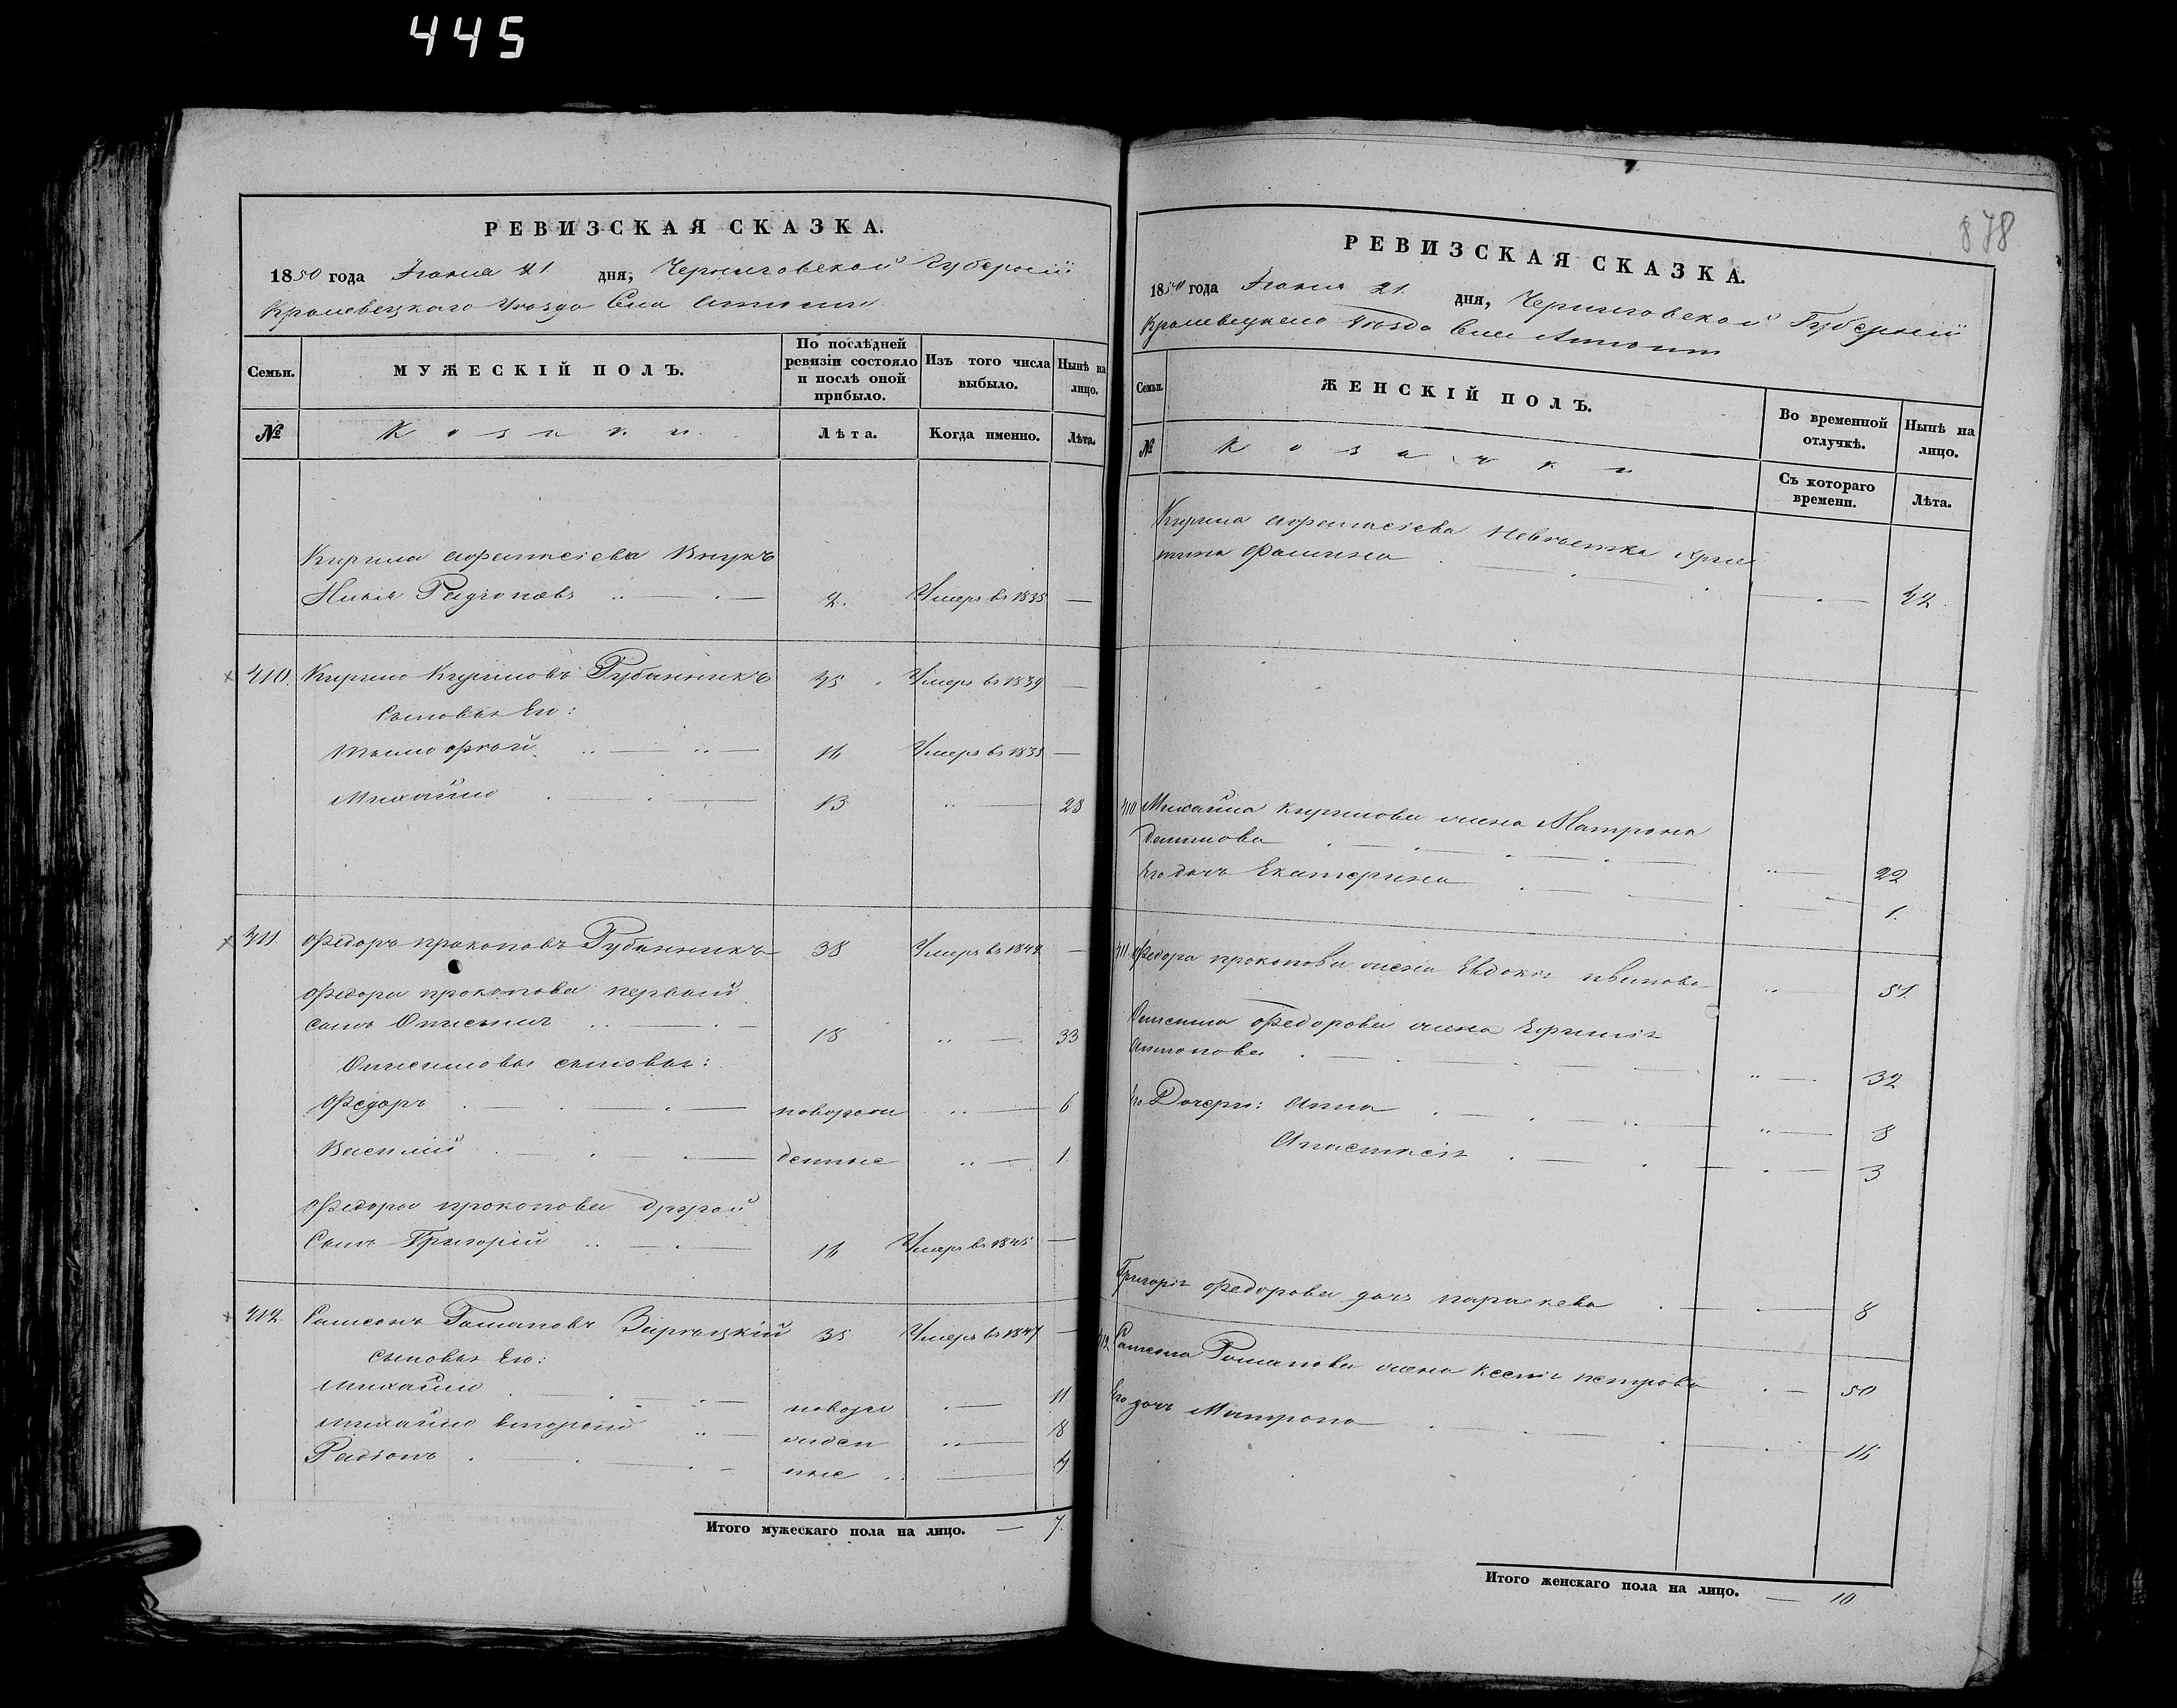 445
РЕВИЗСКАЯ СКАЗКА.
1850 года Июня 21 дня, Черниговской Губерніи
Кролевецкого Уезда Села
Семьи.
МУЖЕСКІЙ ПОЛЪ.
По послѣдней ревизіи состояло и послѣ оной прибыло.
Изъ того числа выбыло.
Нынѣ на лицо.
№
Козаки
Лѣта.
Когда именно.
Лѣта.
Кирила Афанасіева Внукъ
Радіоновъ Умеръ въ 1835 —
410. Кирило Кириловъ Рубанникъ 45 Умеръ въ 1839 —
Сыновья Его:
Тимофѣй 16 Умеръ въ 1835 —
Михайло 13 — 28
411 Федоръ Прокоповъ Рубанникъ 38 Умеръ въ 1844 —
Федора Прокопова первый
сынъ Онисимъ 18 — 33
Онисимовы сыновья:
Федоръ новорож — 6
Василій денные — 1
Федора Прокопова другой
Сынъ Григорій 16 Умеръ въ 1845 —
412. Самсонъ Романовъ 35 Умеръ въ 1847 —
сыновья Его:
Михайло новоро — 11
Михайло второй жден — 8
Радіонъ ные — 4
Итого мужескаго пола на лицо. — 7.
878
РЕВИЗСКАЯ СКАЗКА.
1850 года Июня 21. дня, Черниговской Губерніи
Кролевецкого Уезда Села
Семьи.
ЖЕНСКІЙ ПОЛЪ.
Во временной отлучкѣ.
Нынѣ на лицо.
№
Козачки
Съ котораго времени.
Лѣта.
Кирила Афанасіева Невѣстка Хрис
тина Фомина — 42
410 Михайла Кирилова жена Матрона
— 22
Его дочь Екатерина — 1.
411. Федора Прокопова жена Евдокія Иванова — 51.
Онисима Федорова жена Ефимія
Антонова — 32
Его Дочери: Анна — 8
Анастасія — 3
Григорія Федорова дочь Параскева — 8
412 Самсона Романова жена Ксенія Петрова — 50
Его дочь Матрона — 16
Итого женскаго пола на лицо. — 10